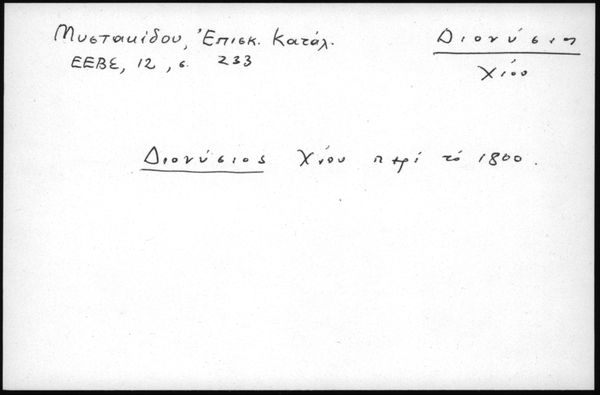 Μυστακίδου, Ἐπισκ. Κατάλ.
ΕΕΒΣ, 12, σ. 233
Διονύσιος
Χίου
Διονύσιος Χίου περί τό 1800.